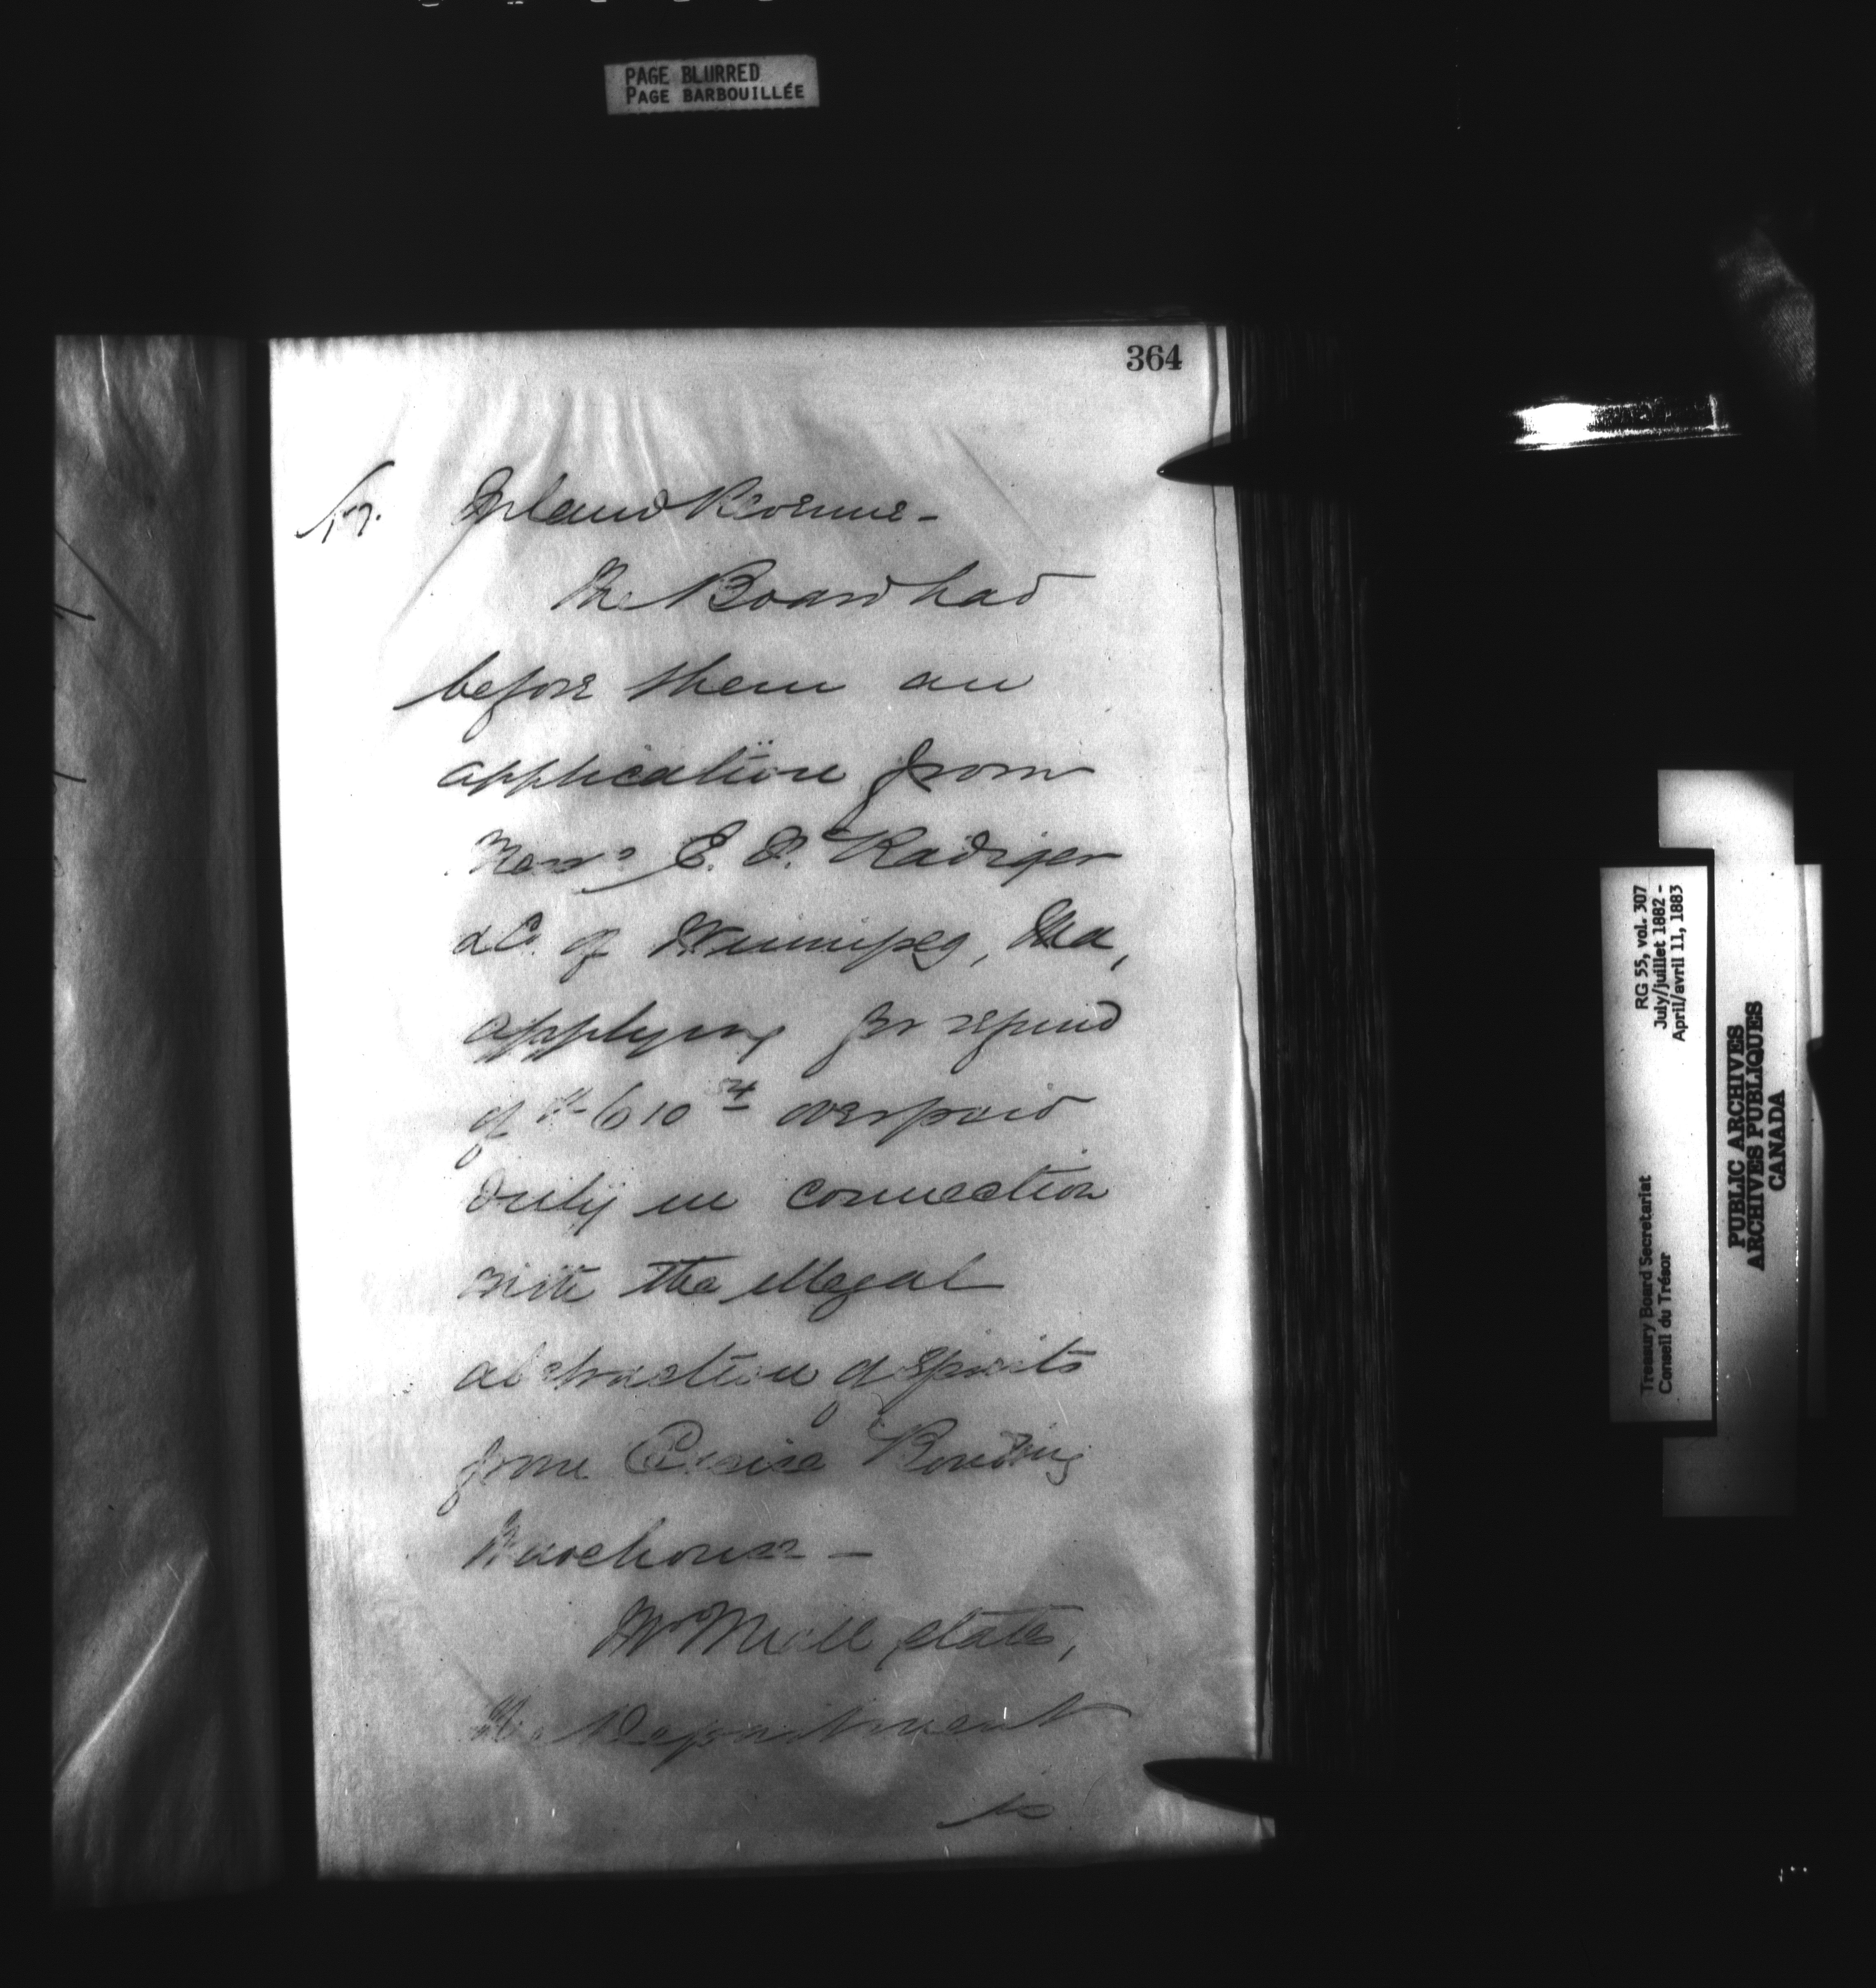 PAGE BLURRED
PAGE BARBOUILLÉE
364
Inland Revenue -
The Board had
before them an
application from
Messrs E. Radiger
& Co. of Winnipeg, Ma,
applying for refund
of $610 54 overpaid
duty in connection
with the illegal
abstraction of Spirits
from Excise Bonding
Warehouse -
Mr Miall states,
the Department
is
RG 55, vol. 307
July/juillet 1882 -
April/avril 11, 1883
Treasury Board Secretariat
Conseil du Trésor
PUBLIC ARCHIVES
ARCHIVES PUBLIQUES
CANADA